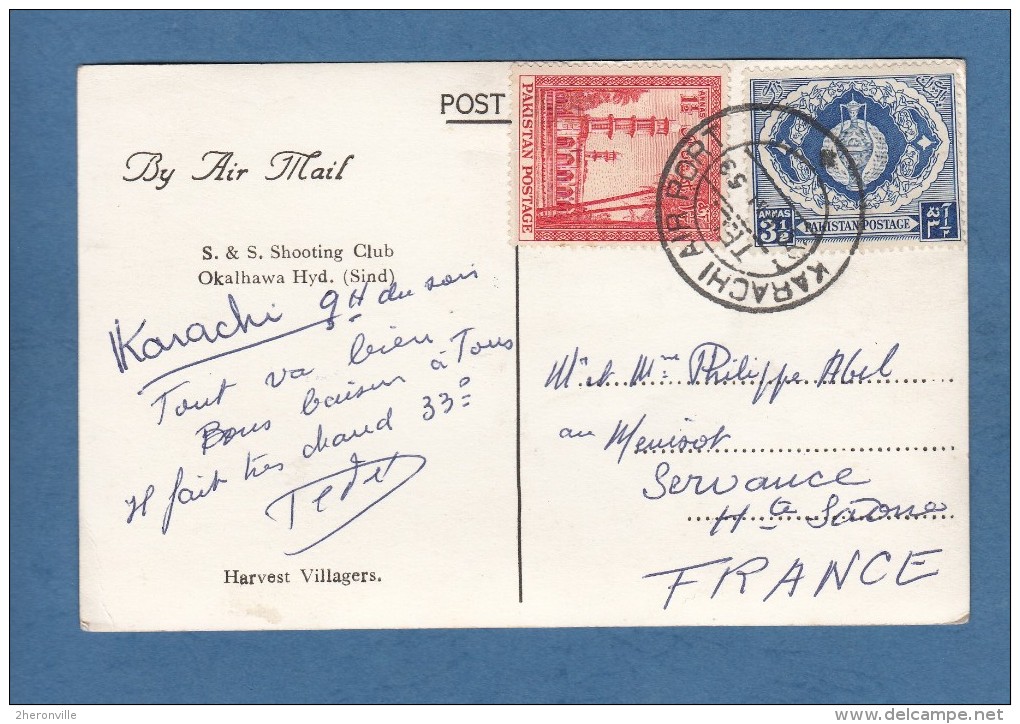 POST
By Air Mail
S. & S. Shooting Club
Okalhawa Hyd. (Sind)
Karachi 9H du soir
Tout va bien
Bons baisers à Tous
Il fait très chaud 33°
Tédé
Harvest Villagers.
PAKISTAN POSTAGE
1½ ANNAS
3½ ANNAS
PAKISTAN POSTAGE
KARACHI AIR PORT
53
Mr et Mme Philippe Abel
au Menisot
Servance
Hte Saône
FRANCE
2heronville
delcampe.net